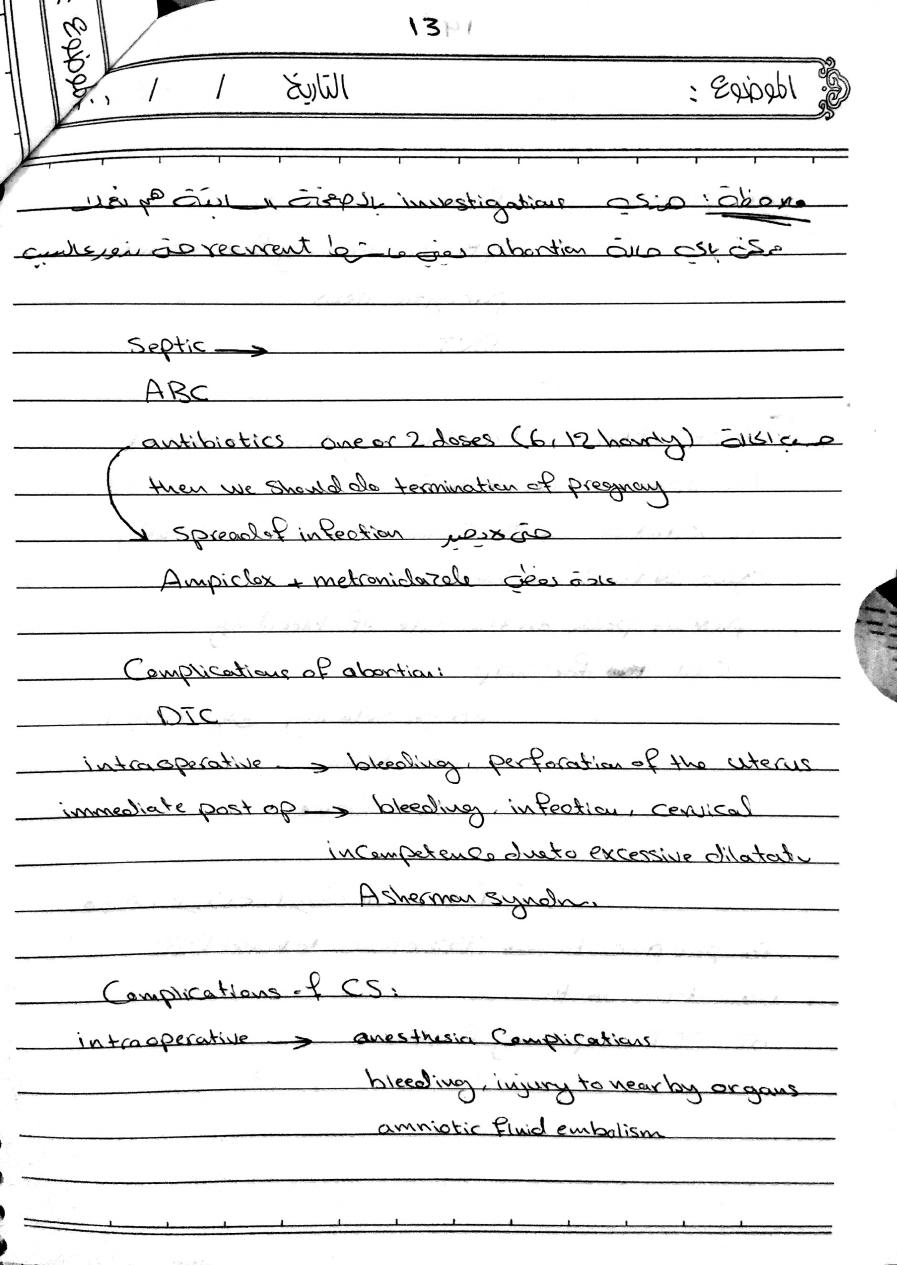 13
الموضوع : التاريخ / /
الموضوع :
ملاحظة: investigations بالصفحة السابقة هم نفسهم
ممكن بأي حالة abortion يعني مو شرط recurrent حتى ندور عالسبب
Septic →
ABC
antibiotics one or 2 doses (6, 12 hourly) حسب الحالة
then we should do termination of pregnay
spread of infection حتى لا يصير
Ampiclox + metronidazole عادة نعطي
Complications of abortion:
DIC
intraoperative → bleeding, perforation of the uterus
immediate post op → bleeding, infection, cervical
incompetence due to excessive dilatat
Asherman syndr.
Complications of CS:
intraoperative → anesthesia Complications
bleeding, injury to nearby organs
amniotic fluid embolism